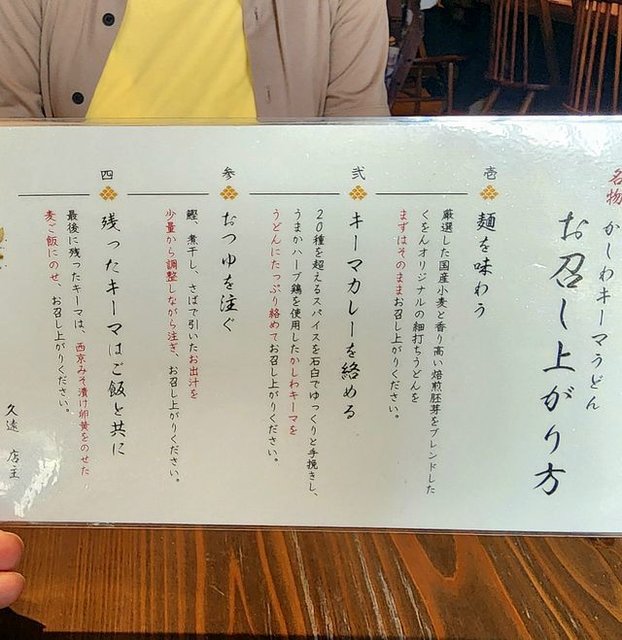 名物
かしわキーマうどん
お召し上がり方
壱
麺を味わう
厳選した国産小麦と香り高い焙煎胚芽をブレンドした
くをんオリジナルの細打ちうどんを
まずはそのままお召し上がりください。
弐
キーマカレーを絡める
20種を超えるスパイスを石臼でゆっくりと手挽きし、
うまかハーブ鶏を使用したかしわキーマを
うどんにたっぷり絡めてお召し上がりください。
参
おつゆを注ぐ
鰹、煮干し、さばで引いたお出汁を
少量から調整しながら注ぎ、お召し上がりください。
四
残ったキーマはご飯と共に
最後に残ったキーマは、西京みそ漬け卵黄をのせた
麦ご飯にのせ、お召し上がりください。
久遠 店主